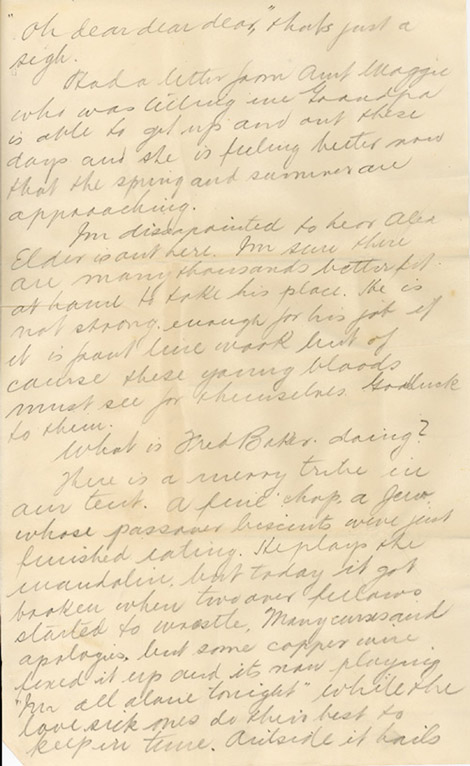 "Oh dear dear dear," thats just a
sigh.
Had a letter from Aunt Maggie
who was telling me Grandpa
is able to get up and out these
days and she is feeling better now
that the spring and summer are
approaching.
I'm disappointed to hear Alex
Elder is out here. I'm sure there
are many thousands better fit
at hand to take his place. He is
not strong enough for his job if
it is front line work but of
course these young bloods
must see for themselves Goodluck
to them.
What is Fred Baker doing?
There is a merry tribe in
our tent. A fine chap, a Jew
whose passover biscuits were just
finished eating. He plays the
mandolin, but today it got
broken when two over fellows
started to wrestle. Many curses and
apologies, but some copper wire
fixed it up and its now playing
"I'm all alone tonight" while the
love sick ones do their best to
keep in time. Outside it hails